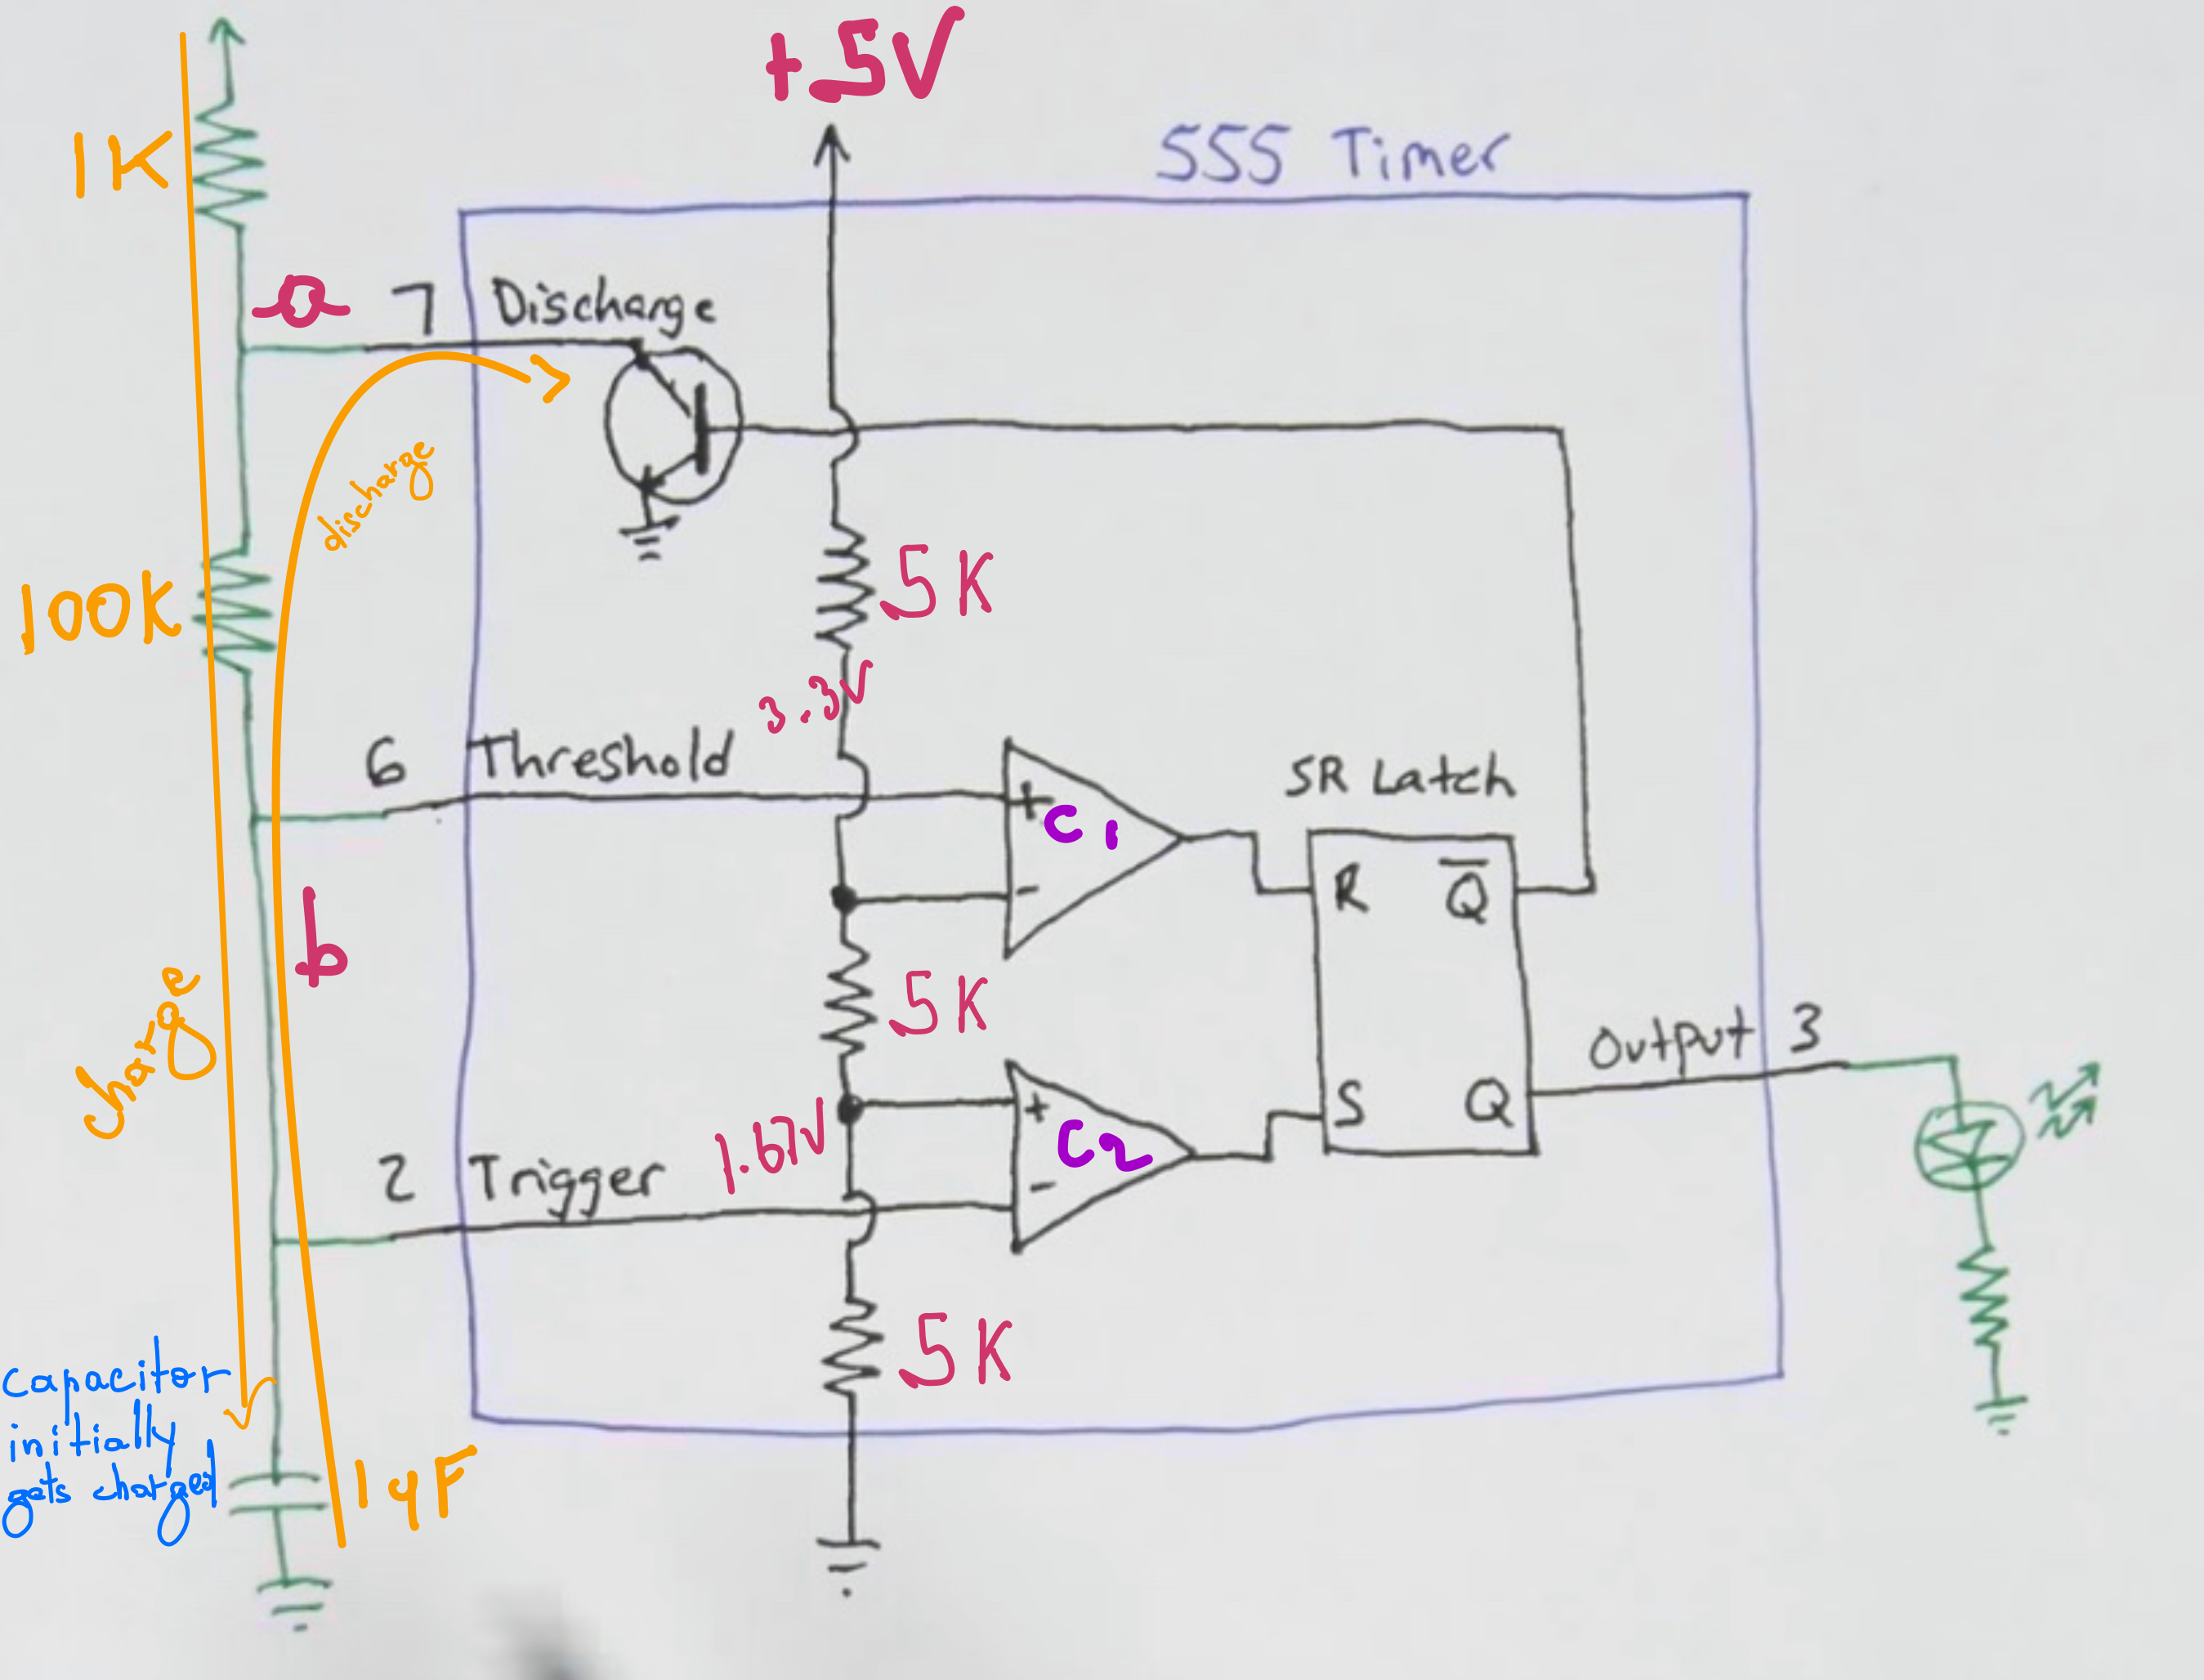 +5V
555 Timer
1K
a
7 Discharge
discharge
5K
100K
3.3V
6 Threshold
+
C1
-
SR Latch
R Q̅
b
5K
charge
Output 3
S Q
+
C2
-
1.67V
2 Trigger
5K
capacitor
initially
gets charged
1µF